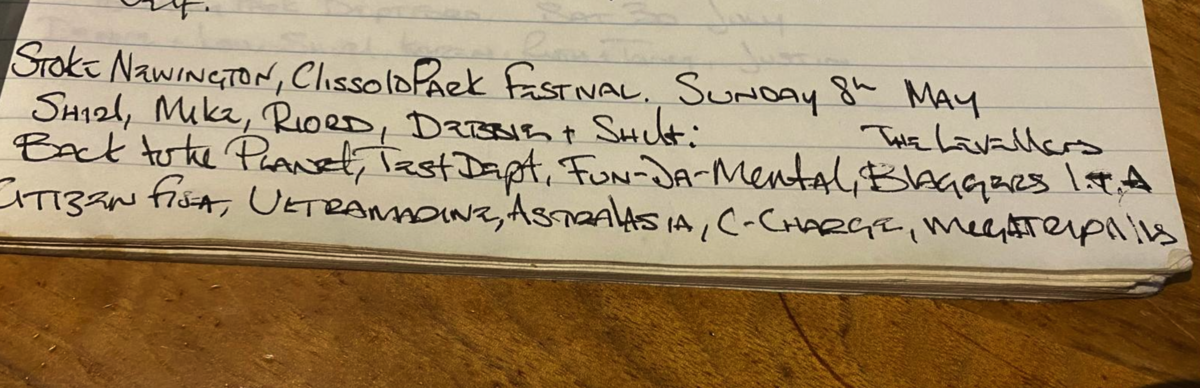 Stoke Newington, Clissold Park Festival. Sunday 8th May
Shiel, Mike, Riord, Debbie + Shut:
The Levellers
Back to the Planet, Test Dept, Fun-Da-Mental, Blaggers I.T.A
Citizen Fish, Ultramarine, Astralasia, C-Charge, Megatripolis